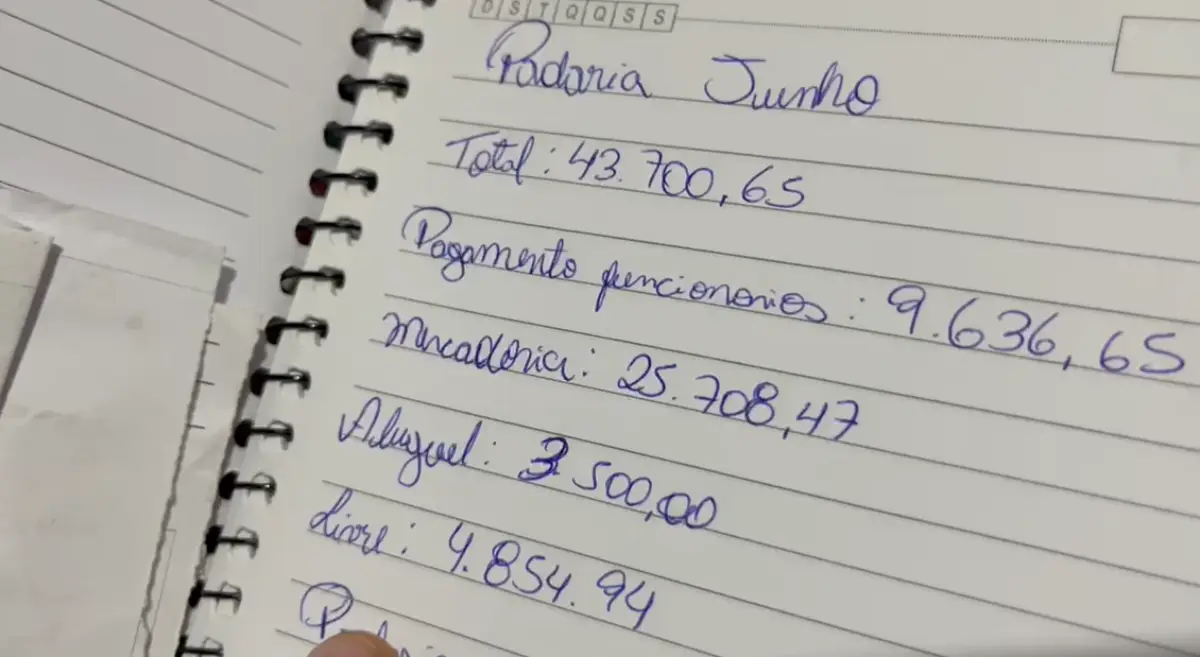 D S T Q Q S S
Padaria Junho
Total: 43.700,65
Pagamento funcionorios: 9.636,65
Mercadoria: 25.708,47
Aluguel: 3 500,00
Livre: 4.854.94